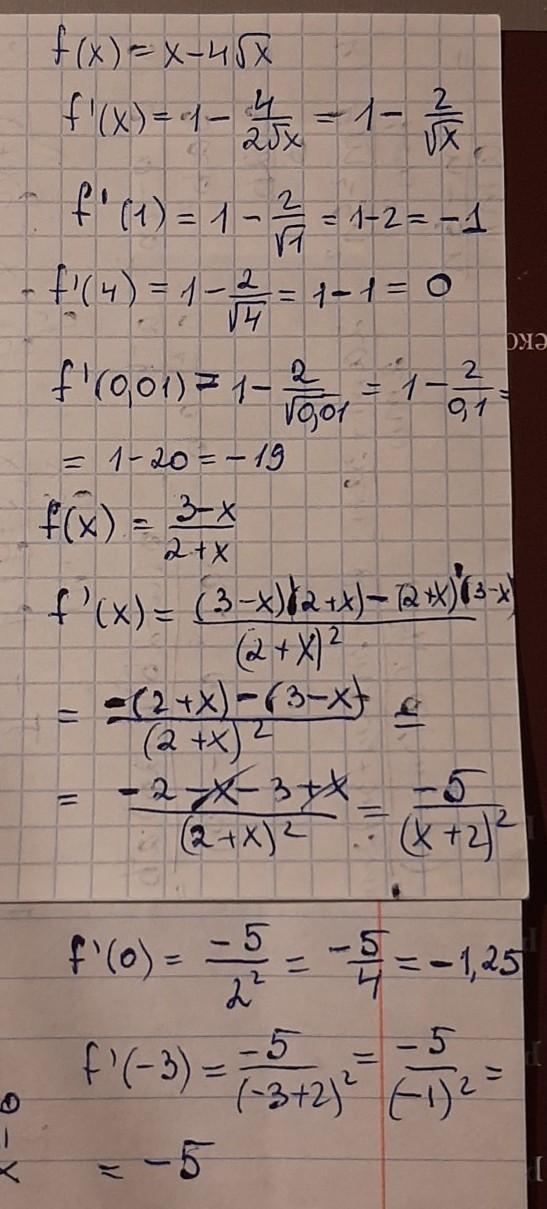 f(x) = x - 4√x
f'(x) = 1 - 4/(2√x) = 1 - 2/√x
f'(1) = 1 - 2/√1 = 1 - 2 = -1
f'(4) = 1 - 2/√4 = 1 - 1 = 0
f'(0,01) = 1 - 2/√0,01 = 1 - 2/0,1 =
= 1 - 20 = -19
f(x) = (3-x)/(2+x)
f'(x) = ((3-x)'(2+x) - (2+x)'(3-x))/(2+x)²
= (-(2+x) - (3-x))/(2+x)² =
= (-2 - x - 3 + x)/(2+x)² = -5/(x+2)²
f'(0) = -5/2² = -5/4 = -1,25
f'(-3) = -5/(-3+2)² = -5/(-1)² =
= -5